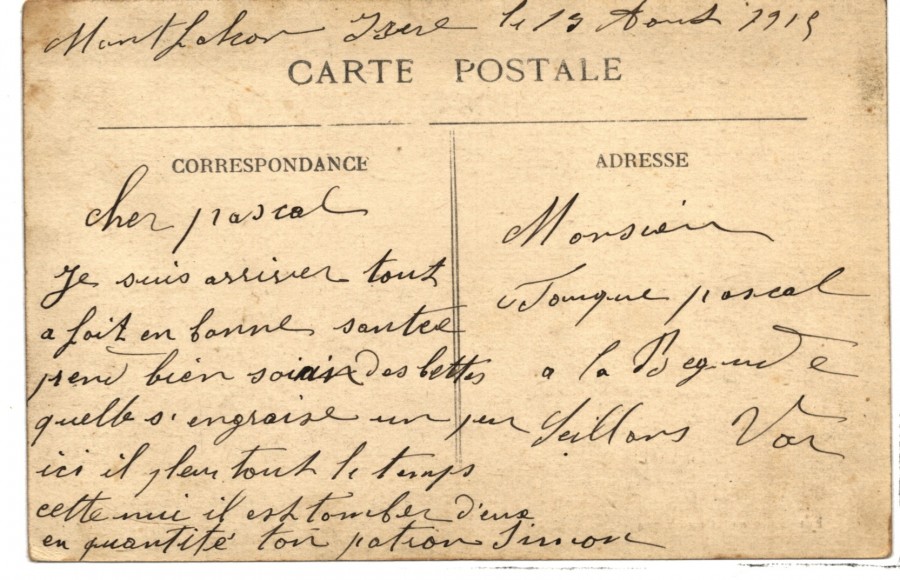 Montfalcon Isere le 13 Aout 1915
CARTE POSTALE
CORRESPONDANCE
cher pascal
Je suis arriver tout
a fait en bonne santee
prend bien soin des bettes
quelle s'engraise un peu
ici il pleut tout le temps
cette nui il est tomber d'eux
en quantité ton patron Simon
ADRESSE
Monsieur
Jouque pascal
a la Begude
Seillans Var